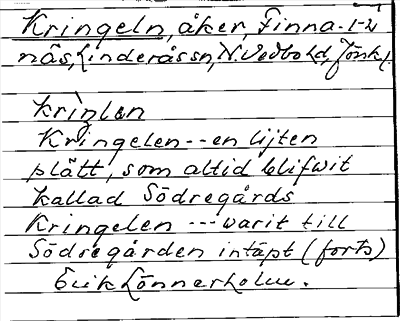 Kringeln, åker, Finna- 1-2
näs, Linderåssn, N. Vedbohd, Jönk l.
kriŋlən
Kringelen -- en lijten
plått, som altid blifwit
kallad Södregårds
Kringelen --- warit till
Södregården intäpt (forts)
Erik Lönnerholm.